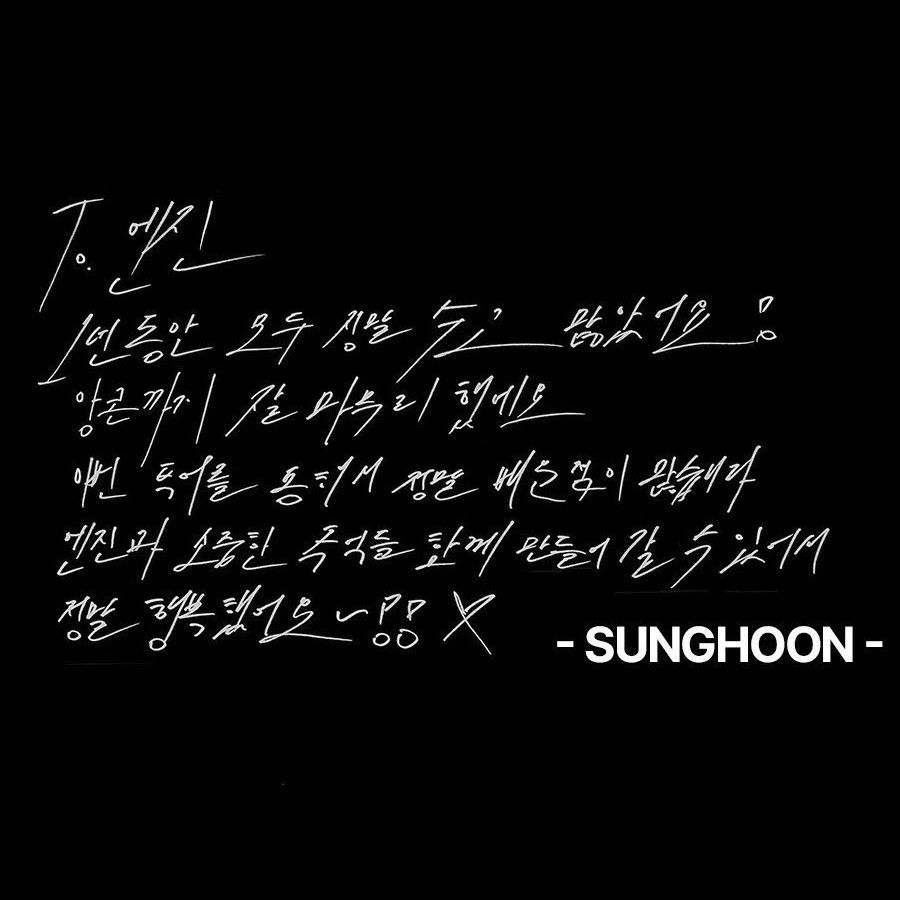 To. 엔진
1년동안 모두 정말 수고 많았어요!
앙콘까지 잘 마무리 했네요
이번 투어를 통해서 정말 배운점이 많습니다
엔진과 소중한 추억들 함께 만들어 갈 수 있어서
정말 행복했어요~!!
- SUNGHOON -